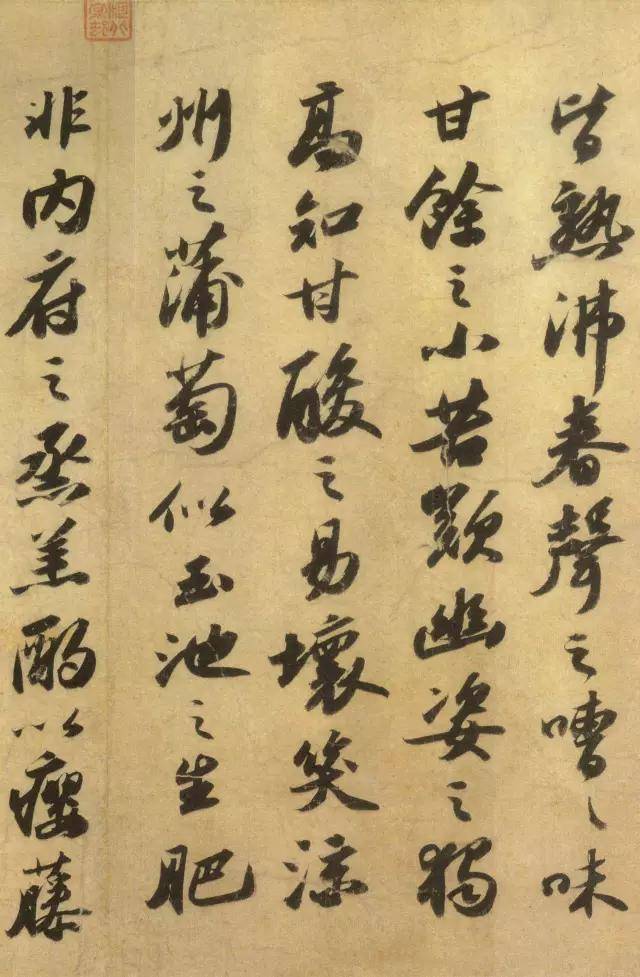 皆熟沸春聲之嘈〻味
甘餘之小苦歎幽姿之獨
高知甘酸之易壞笑涼
州之蒲萄似玉池之生肥
非内府之烝羔酌以癭藤